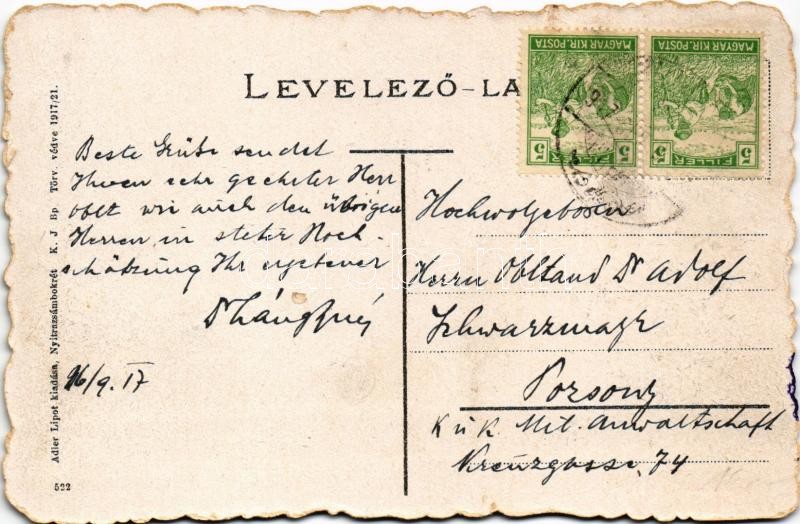 LEVELEZŐ-LA
MAGYAR KIR. POSTA
5 FILLER 5
MAGYAR KIR. POSTA
5 FILLER 5
Beste Grüße sendet
Ihnen sehr geehrter Herr
Oblt wie auch den übrigen
Herren in steter Hoch-
schätzung Ihr ergebener
16/9. 17
Hochwolgeboren
Herrn Obltand Dr Adolf
Schwarzmayr
Pozsony
K u K. Mil. Anwaltschaft
Kreuzgasse. 74
Adler Lipot kiadása, Nyitrazsámbokrét K. J Bp. Törv. védve 1917/21.
522